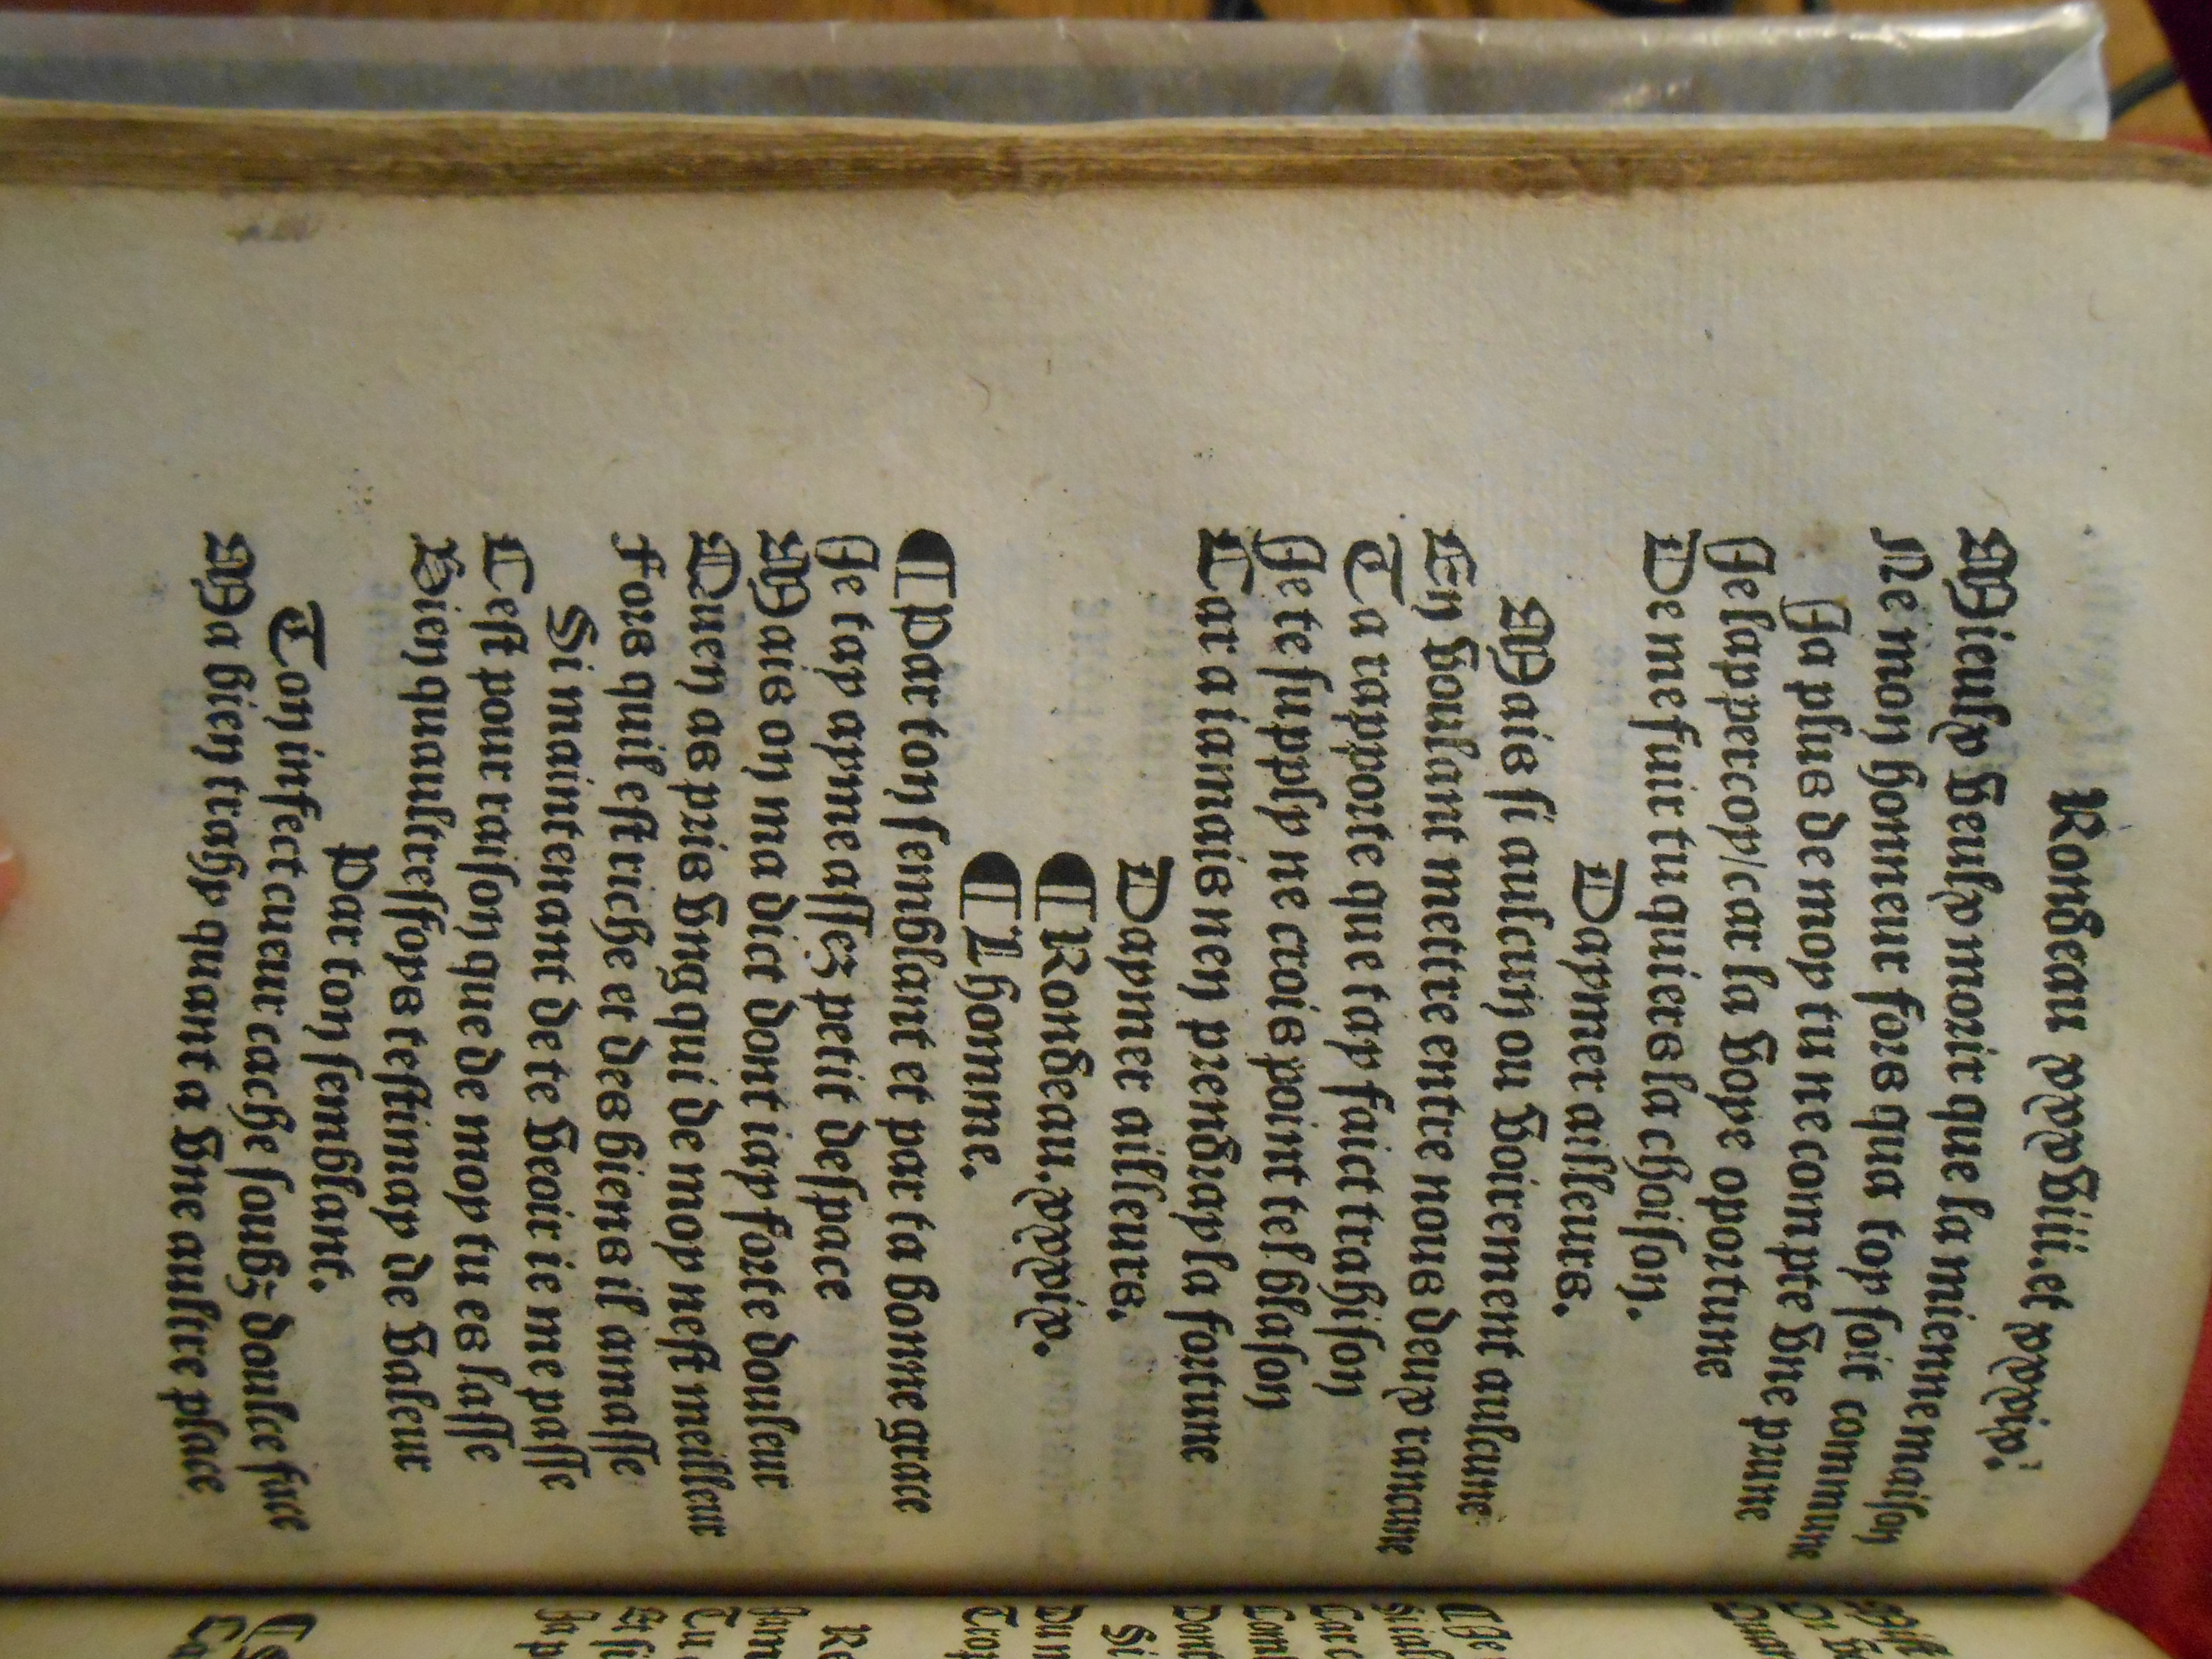 Rondeau xxxviii. et xxxix.
Mieulx veulx morir que la mienne maison
Ne mon honneur fors qua toy soit commune
Ja plus de moy tu ne compte vne prune
Je lappercoy/car la voye oportune
De me fuir tu quiers la choison.
Daymer ailleurs.
Mais si aulcun ou voirement aulcune
En voulant mettre entre nous deux rancune
Ta rapporte que tay faict trahison
Je te supply ne crois point tel blason
Car a iamais nen prendray la fortune
Daymer ailleurs.
¶ Rondeau.xxxix.
¶ Lhomme.
¶ Par ton semblant et par ta bonne grace
Je tay aymee assez petit despace
Mais on ma dict dont iay forte douleur
Quen as pris vng qui de moy nest meilleur
Fors quil est riche et des biens il amasse
Si maintenant de te veoir ie me passe
Cest pour raison que de moy tu es lasse
Bien quaultreffoys testimay de valeur
Par ton semblant.
Ton infect cueur cache soubz doulce face
Ma bien trahy quant a vne aultre place